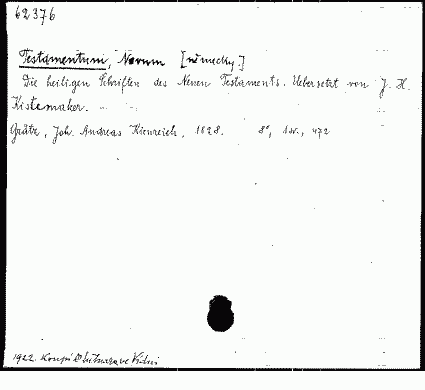 62376
Testamentum, Novum [německy.]
Die heiligen Schriften des Neuen Testaments. Uebersetzt von J. H.
Kistemaker.
Grätz, Joh. Andreas Kienreich, 1828. 8°, 1 sv., 472
1922. Koupí